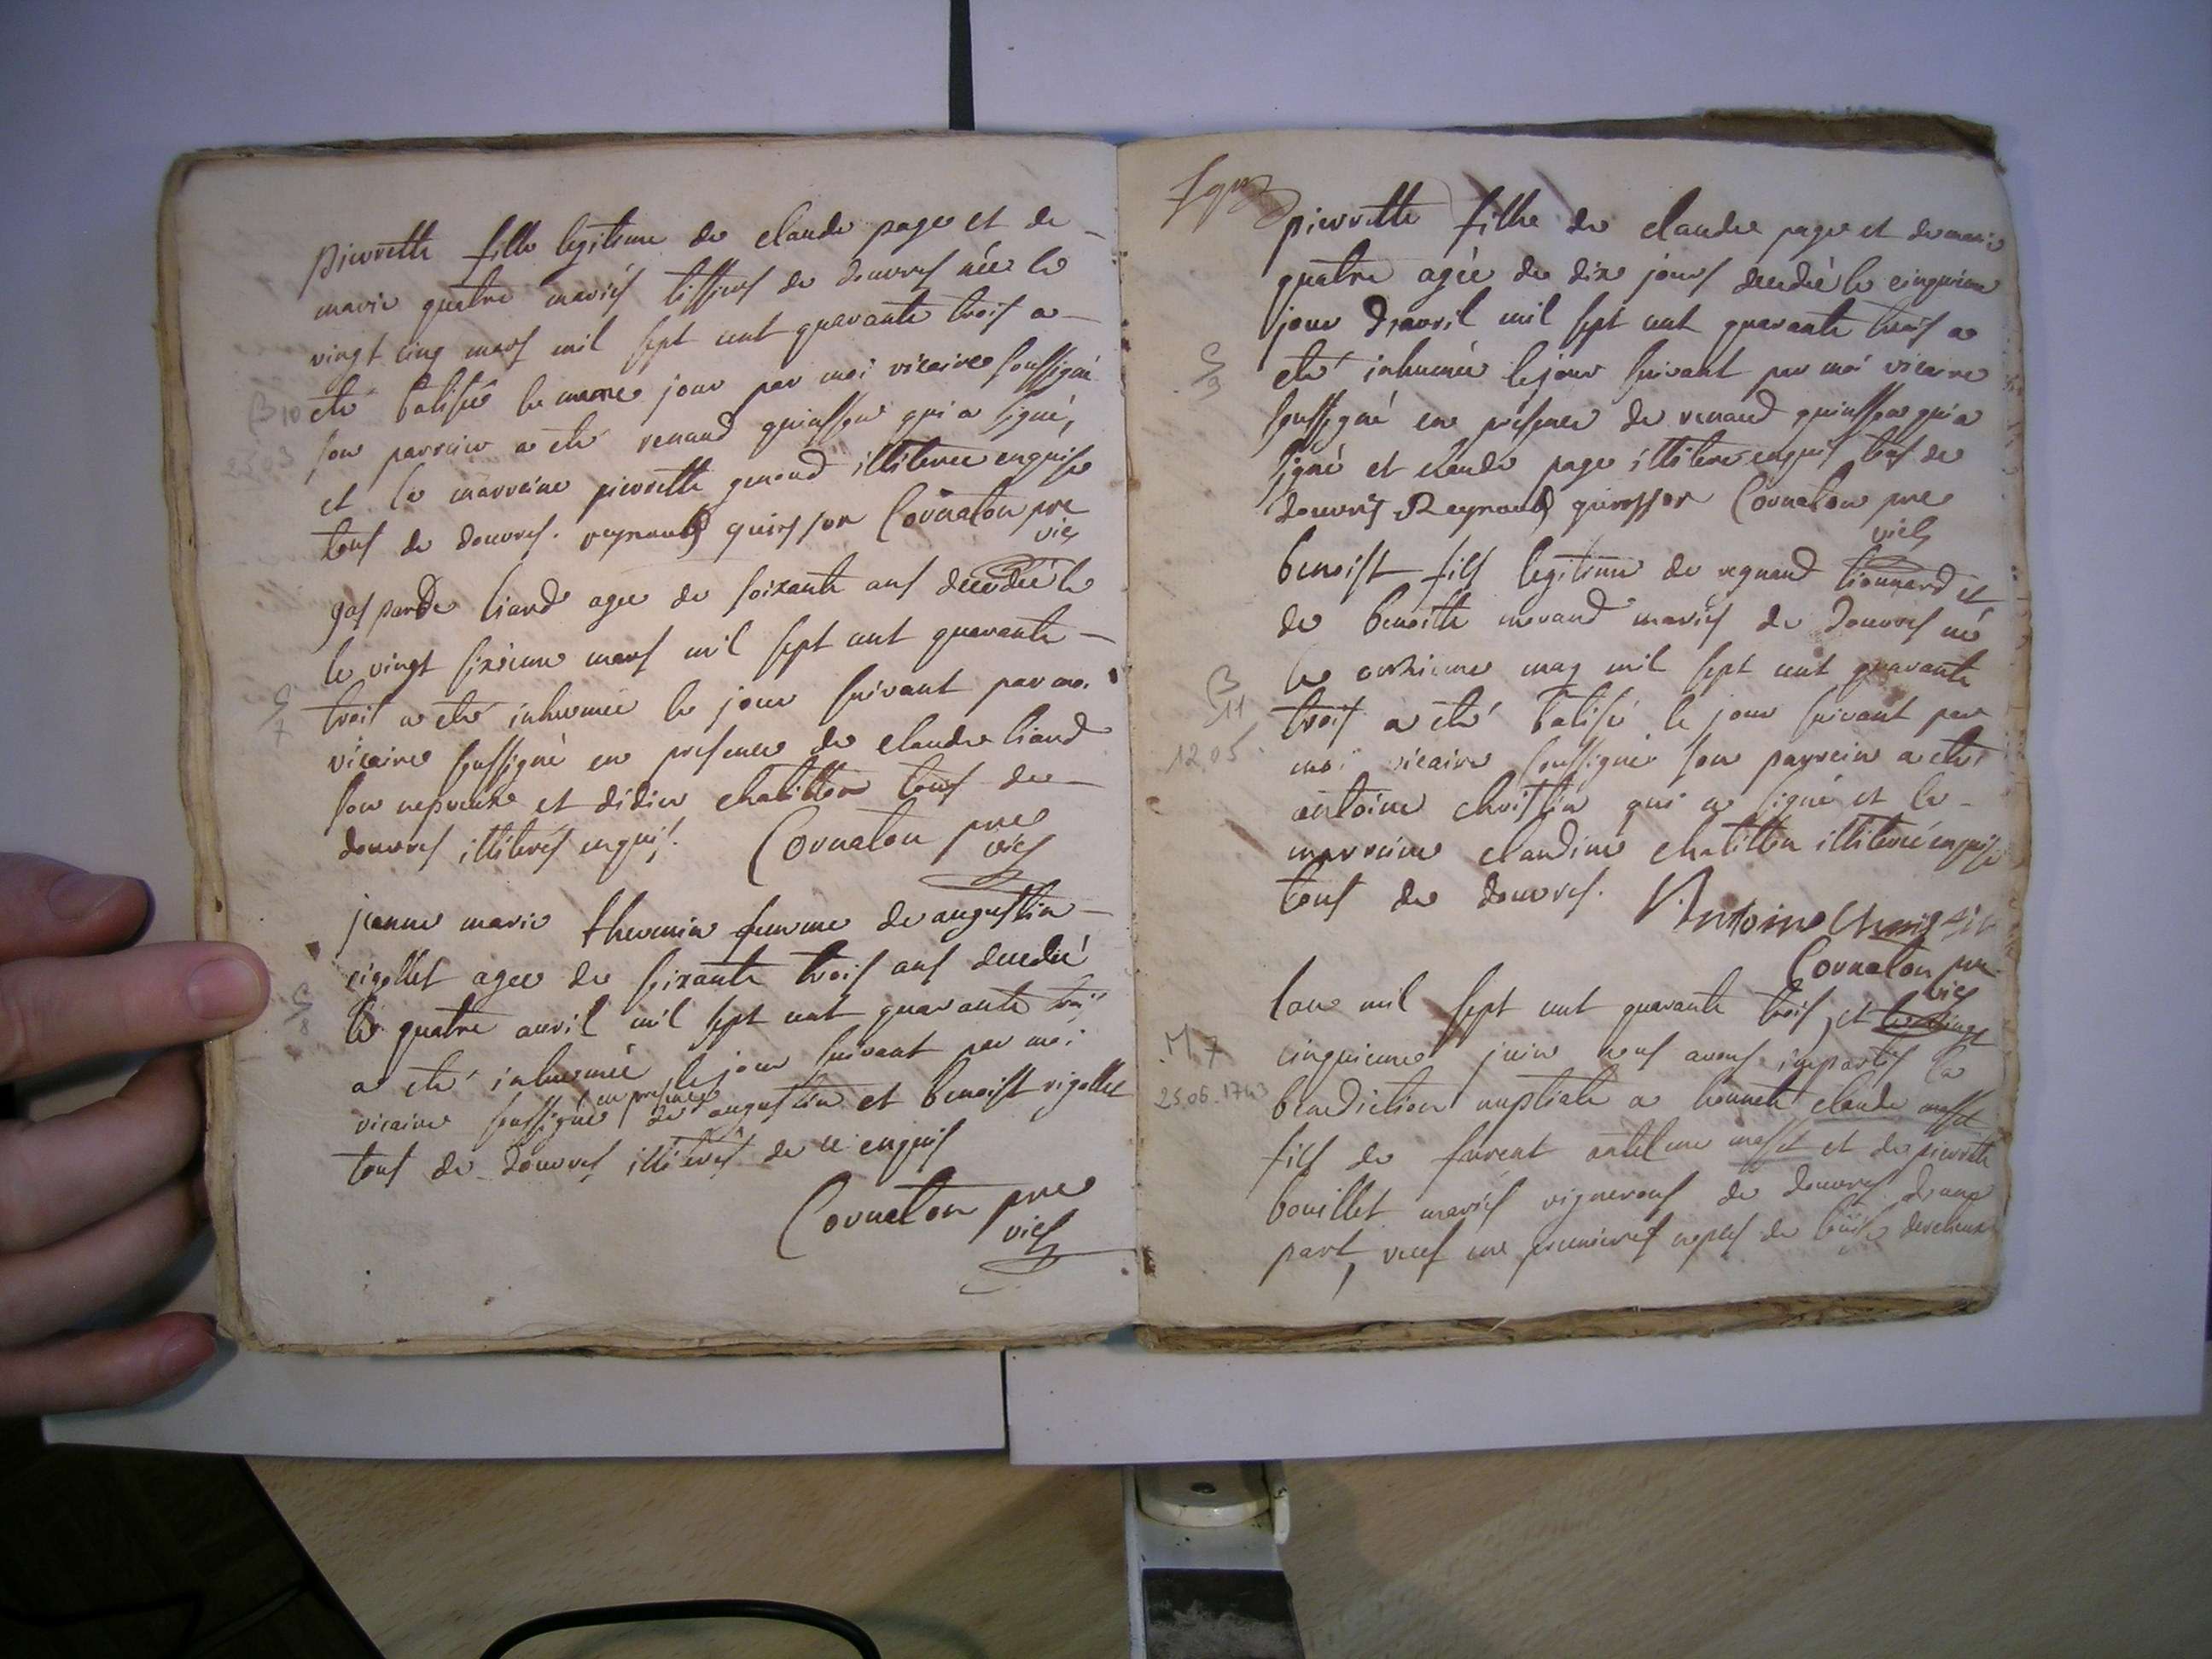 pierrette fille legitime de claude page et de
marie quatre mariés tissiers de douvres née le
vingt cinq mars mil sept cent quarante trois a
B 10
25 03
eté batisée le meme jour par moi vicaire soussigné
son parrain a eté renaud quinsson qui a signé,
et la marreine pierrette genoud illiterée enquise
tous de douvres. reynaud quinsson Cornaton pre
vic
gasparde liand agee de soixante ans decedée le
le vingt sixieme mars mil sept cent quarante
S 7
trois a eté inhumée le jour suivant par moi
vicaire soussigné en presence de claude liand
son nepveux et didier chatillon tous de
douvres illiterés enquis. Cornaton pre
vic
jeanne marie thevenin femme de augustin
rigollet agee de soixante trois ans decedée
S 8
le quatre auril mil sept cent quarante trois
a eté inhumée le jour suivant par moi
vicaire soussigné en presence de augustin et benoist rigollet
tous de douvres illiterés de ce enquis
Cornaton pre
vic
pierrette fille de claude page et de marie
quatre agée de dix jours decedée le cinquieme
jour d'avril mil sept cent quarante trois a
S 9
eté inhumée le jour suivant par moi vicaire
soussigné en presence de renaud quinsson qui a
signé et claude page illiteré enquis tous de
douvres Reynaud quinsson Cornaton pre
vic
benoist fils legitime de reynaud lionnard et
de benoitte morand mariés de douvres né
B 11
12.05.
le onzieme may mil sept cent quarante
trois a eté batisé le jour suivant par
moi vicaire soussigné son parrein a eté
antoine christin qui a signé et la
marreine claudine chatillon illiterée enquise
tous de douvres. Antoine Christin
Cornaton pre
vic
lan mil sept cent quarante trois et le vingt
M 7
25.06.1743
cinquieme juin nous avons imparti la
benediction nuptiale a honnete claude masset
fils de furent antelme masset et de pierrette
bouillet mariés vignerons de douvres d'une
part, veuf en premieres nopces de